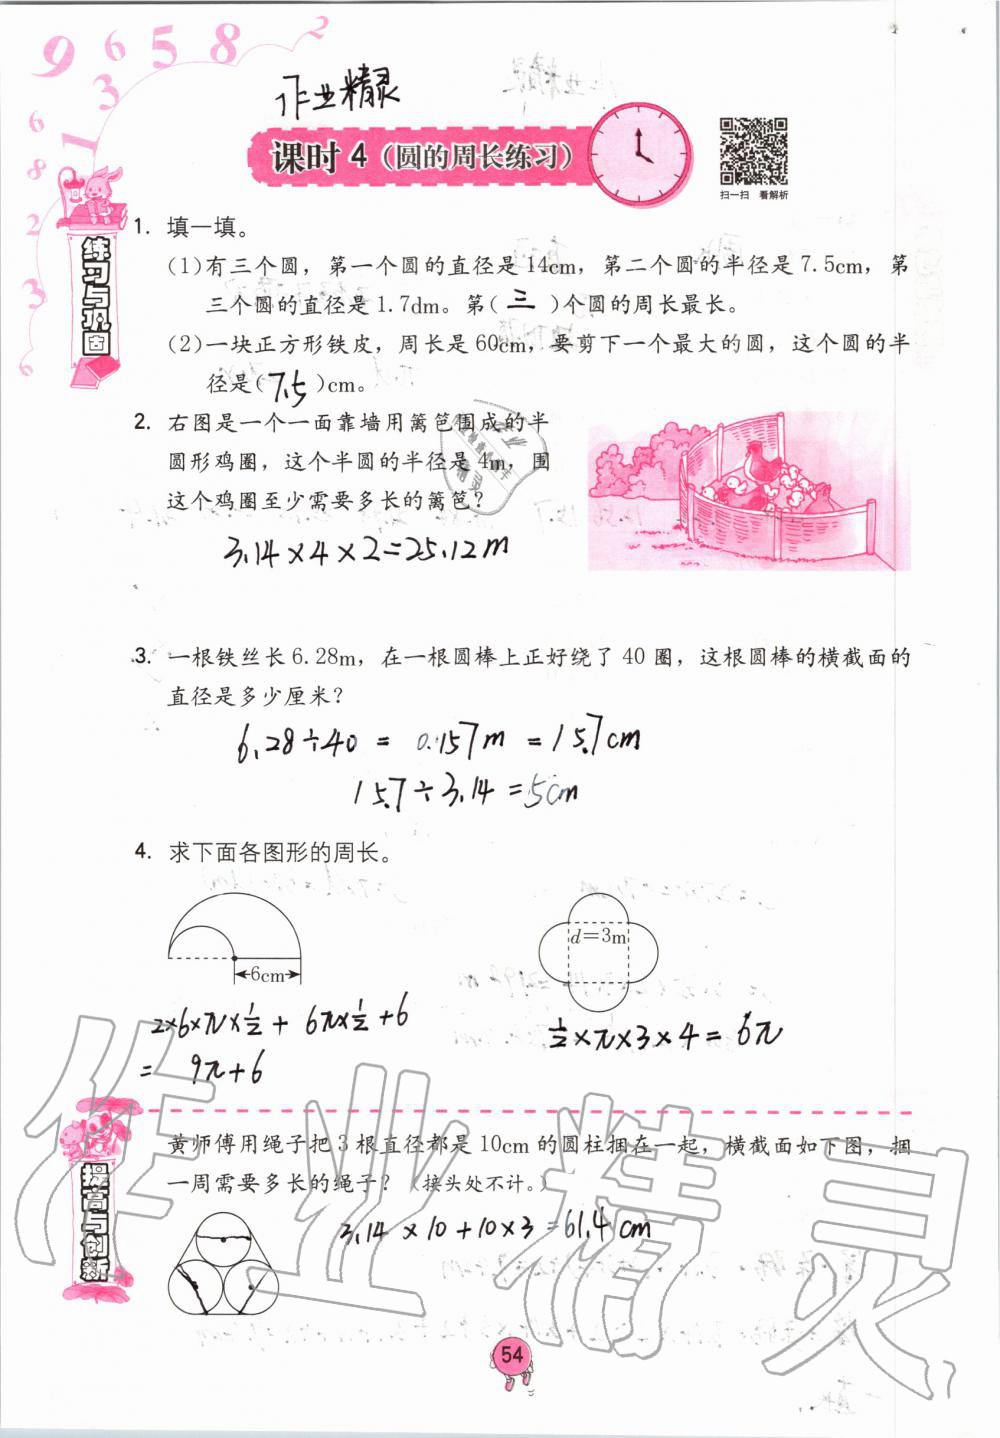 9 6 5 8 2
作业精灵
课时 4（圆的周长练习）
扫一扫 看解析
6 1 3 8 2 6 3
练习与巩固
1. 填一填。
(1)有三个圆，第一个圆的直径是14cm，第二个圆的半径是7.5cm，第
三个圆的直径是1.7dm。第( 三 )个圆的周长最长。
(2)一块正方形铁皮，周长是60cm，要剪下一个最大的圆，这个圆的半
径是(7.5)cm。
2. 右图是一个一面靠墙用篱笆围成的半
圆形鸡圈，这个半圆的半径是4m，围
这个鸡圈至少需要多长的篱笆？
3.14×4×2=25.12m
3. 一根铁丝长6.28m，在一根圆棒上正好绕了40圈，这根圆棒的横截面的
直径是多少厘米？
6.28÷40 = 0.157m = 15.7cm
15.7÷3.14=5cm
4. 求下面各图形的周长。
6cm
d=3m
2×6×π×1/2+ 6π×1/2+6
= 9π+6
1/2×π×3×4=6π
提高与创新
黄师傅用绳子把3根直径都是10cm的圆柱捆在一起，横截面如下图，捆
一周需要多长的绳子？（接头处不计。）
3.14×10+10×3=61.4cm
作业精灵
54